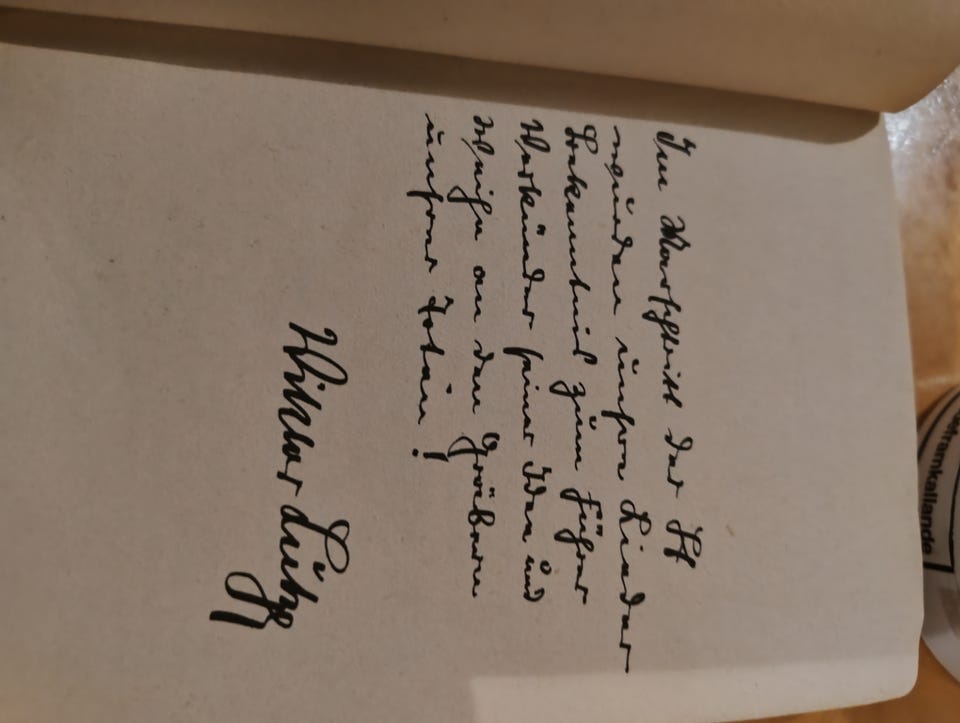 Im Marschtritt der SA
wurden unsere Lieder
Bekenntnis zum Führer
Verkünder seiner Idee und
Weihe an den Gräbern
unserer Toten!
Viktor Lutze
eframkallande